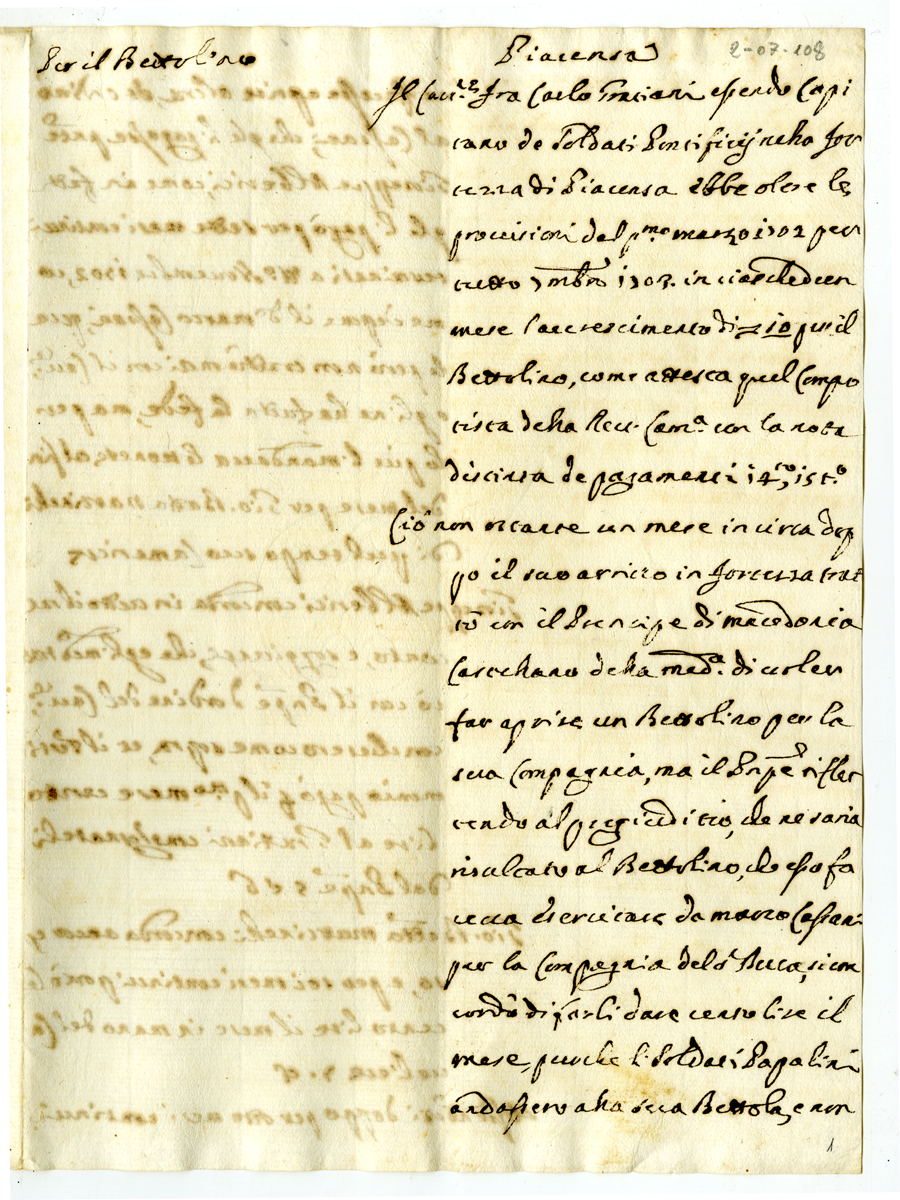 Per il Bettolino
Piacenza
2-07-108
Il Cav.re Fra Carlo Graziani essendo Capi
tano de Soldati Pontificij nella For
tezza di Piacenza ebbe oltre le
provisioni dal p.mo marzo 1702 per
tutto 9mbre 1703. in ciaschedun
mese l'accrescimento di 10 per il
Bettolino, come attesta quel Compo
tista della Rev. Cam.a con la nota
distinta de pagamenti 14.to, 15.to
Ciò non ostante un mese in circa dop
po il suo arrivo in Fortezza trat
tò con il Prencipe di Macedonia
Castellano della med.a di voler
far aprire un Bettolino per la
sua Compagnia, ma il Pnpe riflet
tendo al pregiuditio, che ne saria
risultato al Bettolino, che esso fa
ceva esercitare da Marco Casani
per la Compagnia del Buca, si con
cordò di farli dare cento lire il
mese, purche li Soldati Papalini
andassero alla sua Bettola, e non
1